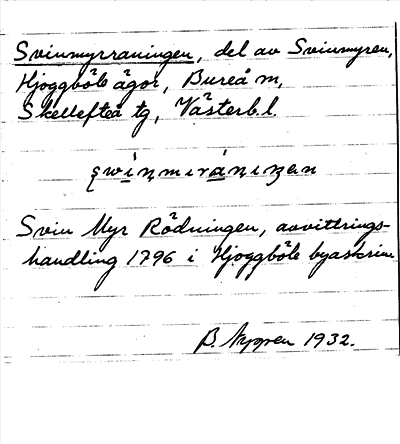 Svinmyrraningen, del av Svinmyren,
Hjoggböle ägor, Bureå sn,
Skellefteå tg, Västerb. l.
Svin Myr Rödningen, avvittrings-
handling 1796 i Hjoggböle byaskrin
B. 1932.